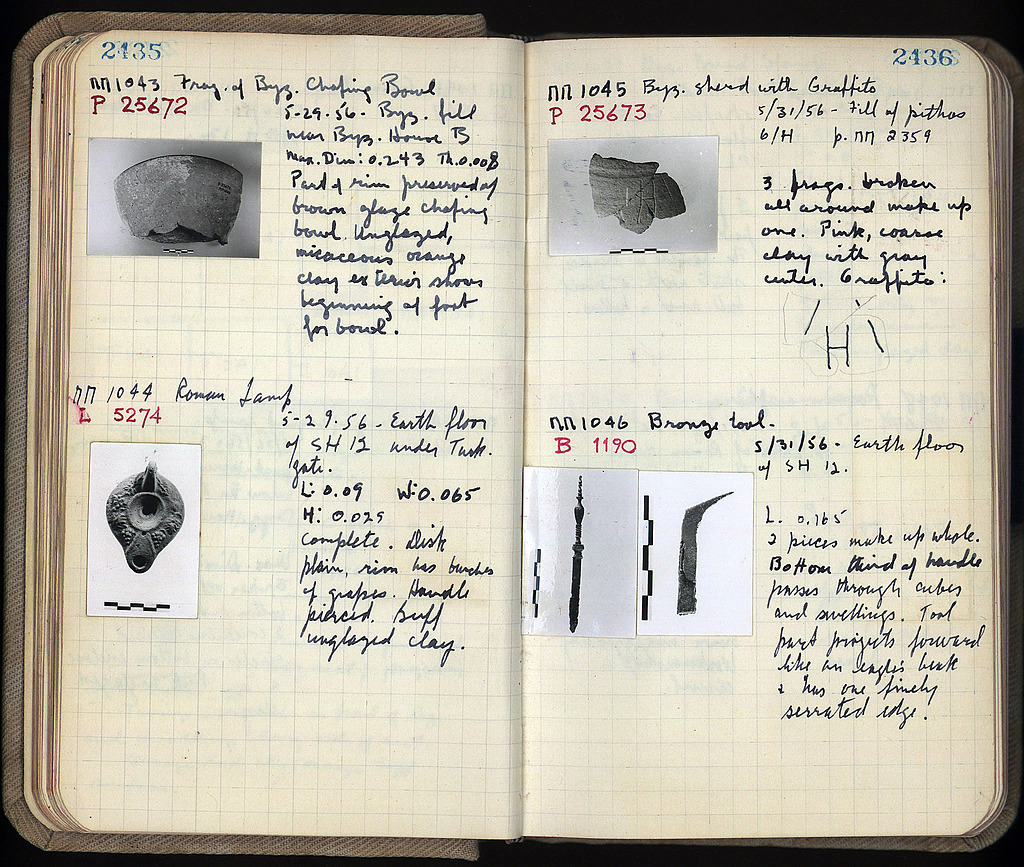 2435
ΠΠ 1043 Frag. of Byz. Chafing Bowl
P 25672
5-29-56- Byz. fill
near Byz. House B
Max. Dim: 0.243 Th. 0.008
Part of rim preserved of
brown glaze chafing
bowl. Unglazed,
micaceous orange
clay exterior shows
beginning of foot
for bowl.
ΠΠ 1044 Roman Lamp
L 5274
5-29-56 - Earth floor
of SH 12 under Turk.
gate.
L: 0.09 W: 0.065
H: 0.029
Complete. Disk
plain, rim has bunches
of grapes. Handle
pierced. Buff
unglazed clay.
2436
ΠΠ 1045 Byz. sherd with Graffito
P 25673
5/31/56 - Fill of pithos
6/H p. ΠΠ 2359
3 frags. broken
all around make up
one. Pink, coarse
clay with gray
center. Graffito:
H
ΠΠ 1046 Bronze tool-
B 1190
5/31/56 - Earth floor
of SH 12.
L. 0.165
2 pieces make up whole.
Bottom third of handle
passes through cubes
and swellings. Tool
part projects forward
like an eagle's beak
& has one finely
serrated edge.